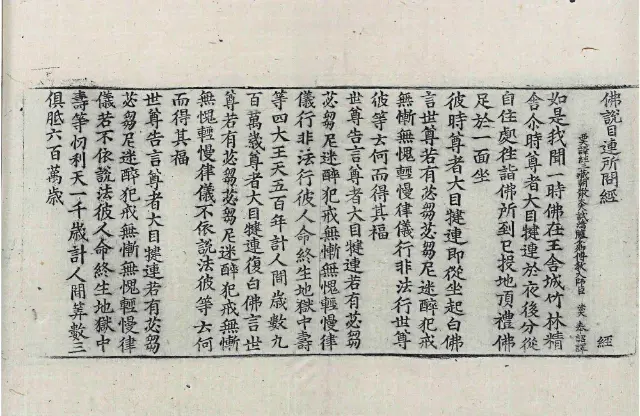 佛說目連所問經
西天譯經三藏朝散大夫試鴻臚少卿傳教大師臣 奉詔譯
經
如是我聞一時佛在王舍城竹林精
舍尒時尊者大目犍連於夜後分從
自住處往詣佛所到已投地頂禮佛
足於一面坐
彼時尊者大目犍連即從坐起白佛
言世尊若有苾芻苾芻尼迷醉犯戒
無慚無愧輕慢律儀行非法行世尊
彼等去何而得其福
世尊告言尊者大目犍連若有苾芻
苾芻尼迷醉犯戒無慚無愧輕慢律
儀行非法行彼人命終生地獄中壽
等四大王天五百年計人間歲數九
百萬歲尊者大目犍連復白佛言世
尊若有苾芻苾芻尼迷醉犯戒無慚
無愧輕慢律儀不依說法彼等去何
而得其福
世尊告言尊者大目犍連若有苾芻
苾芻尼迷醉犯戒無慚無愧輕慢律
儀若不依說法彼人命終生地獄中
壽等忉利天一千歲計人間筭數三
俱胝六百萬歲